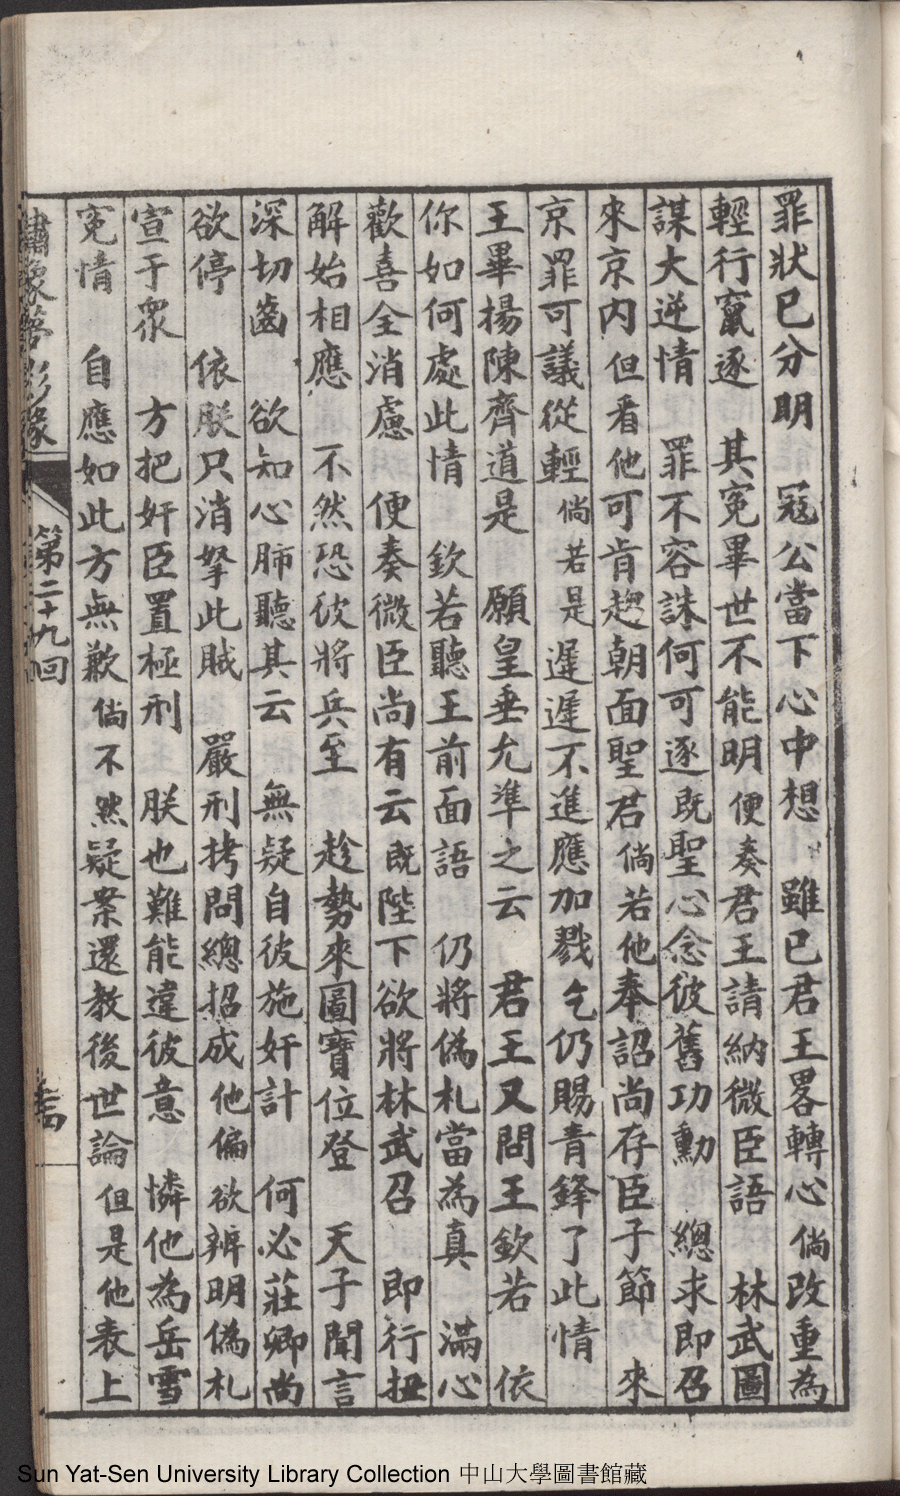 罪狀已分明　寇公當下心中想　雖已君王畧轉心倘改重為
輕行竄逐　其冤畢世不能明便奏君王請納微臣語　林武圖
謀大逆情　罪不容誅何可逐既聖心念彼舊功勳　總求即召
來京内但看他可肯趨朝面聖君倘若他奉詔尚存臣子節　來
京罪可議從輕倘若是遲遲不進應加戮乞仍賜青鋒了此情
王畢揚陳齊道是　願皇垂允準之云　君王又問王欽若　依
你如何處此情　欽若聽王前面語　仍將偽札當為真　滿心
歡喜全消慮　便奏微臣尚有云既陛下欲將林武召　即行扭
解始相應　不然恐彼將兵至　趁勢來圖寶位登　天子聞言
深切齒　欲知心肺聽其云　無疑自彼施奸計　何必莊卿尚
欲停　依朕只消拏此賊　嚴刑拷問總招成他偏欲辨明偽札
宣于眾　方把奸臣置極刑　朕也難能違彼意　憐他為岳雪
冤情　自應如此方無歉倘不然疑案還教後世論但是他表上
第二十九回
Sun Yat-Sen University Library Collection 中山大學圖書館藏